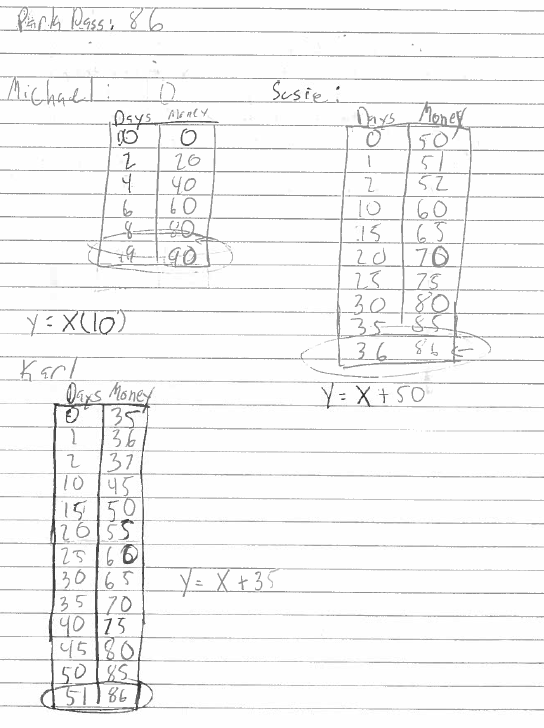 Park Pass: 86
Michael: 0
Days Money
0 0
2 20
4 40
6 60
8 80
9 90
y = x(10)
Susie:
Days Money
0 50
1 51
2 52
10 60
15 65
20 70
25 75
30 80
35 85
36 86
Y = X + 50
Karl
Days Money
0 35
1 36
2 37
10 45
15 50
20 55
25 60
30 65
35 70
40 75
45 80
50 85
51 86
Y = X + 35